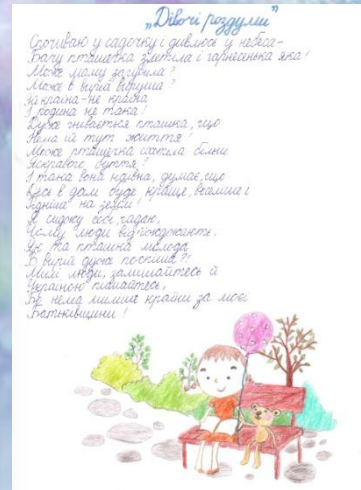 „Дівочі роздуми"
Спочиваю у садочку і дивлюсь у небеса-
Бачу пташечка злетіла і гарнесенька яка!
Може маму загубила?
Може в вирій вирушила?
Їй країна-не країна
І родина не така!
Дуже гнівається пташка, що
Нема їй тут життя!
Може пташечка схотіла більш
Яскравого буття?
І така вона наївна, думає, що
десь в далі буде краще, веселіше і
рідніше на землі!
Я сиджу собі, гадаю,
Чому люди від'їжджають.
Як та пташка молода
В вирій дуже поспіша?!
Милі люди, залишайтесь й
Україною пишайтесь,
Бо нема миліше країни за моєї
Батьківщини!